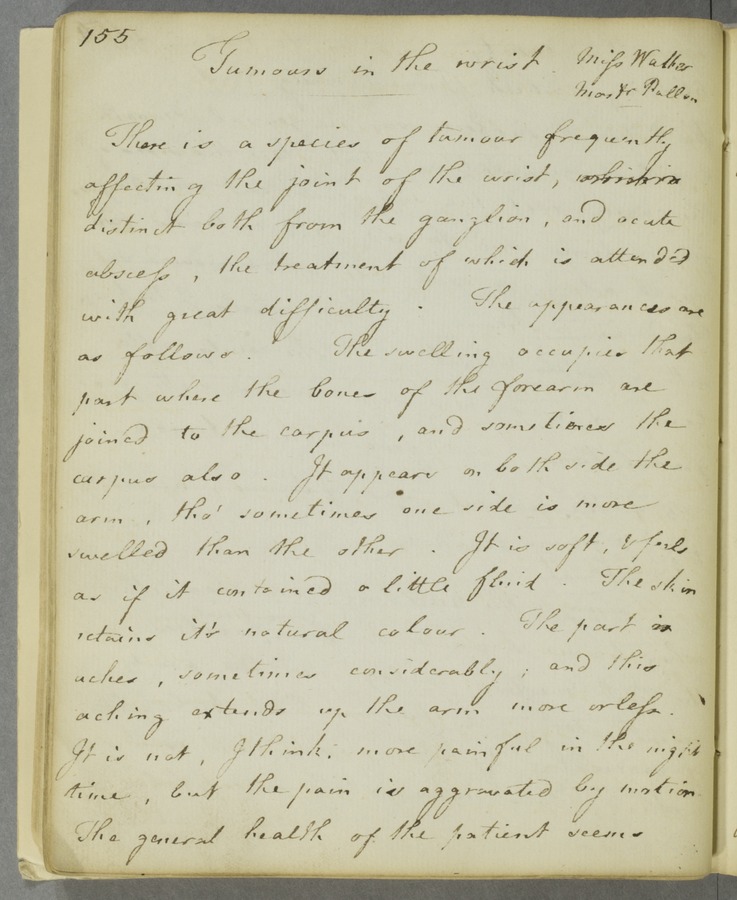 155
Tumours in the wrist. Miss Walker
Mastr Pullen
There is a species of tumour frequently
affecting the joint of the wrist,
distinct both from the ganglion, and acute
abscess, the treatment of which is attended
with great difficulty. The appearances are
as follows. The swelling occupies that
part where the bones of the forearm are
joined to the carpus, and sometimes the
carpus also. It appears on both side the
arm, tho' sometimes one side is more
swelled than the other. It is soft, & feels
as if it contained a little fluid. The skin
retains it's natural colour. The part
aches, sometimes considerably; and this
aching extends up the arm more or less.
It is not, I think, more painful in the night
time, but the pain is aggravated by motion
The general health of the patient seems